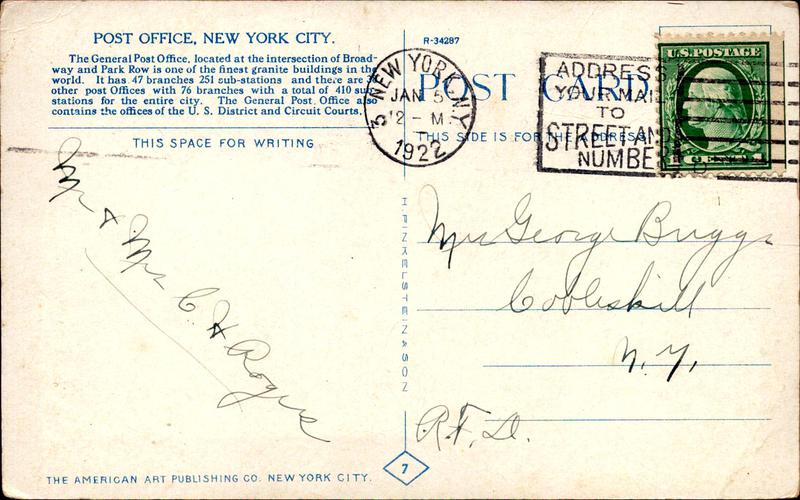 POST OFFICE, NEW YORK CITY.
The General Post Office, located at the intersection of Broad-
way and Park Row is one of the finest granite buildings in the
world. It has 47 branches 251 sub-stations and there are
other post Offices with 76 branches with a total of 410 sub
stations for the entire city. The General Post Office also
contains the offices of the U. S. District and Circuit Courts.
THIS SPACE FOR WRITING
Mr & Mrs C. H Rogers
THE AMERICAN ART PUBLISHING CO. NEW YORK CITY.
R-34287
POST CARD
THIS SIDE IS FOR THE ADDRESS
NEW YORK, N.Y.
3
JAN 5
12 - M.
1922
ADDRESS
YOUR MAIL
TO
STREET AND
NUMBER
U.S. POSTAGE
1 CENT 1
H. FINKELSTEIN & SON
7
Mrs George Briggs
Cobleskill
N. Y.
R. F. D.